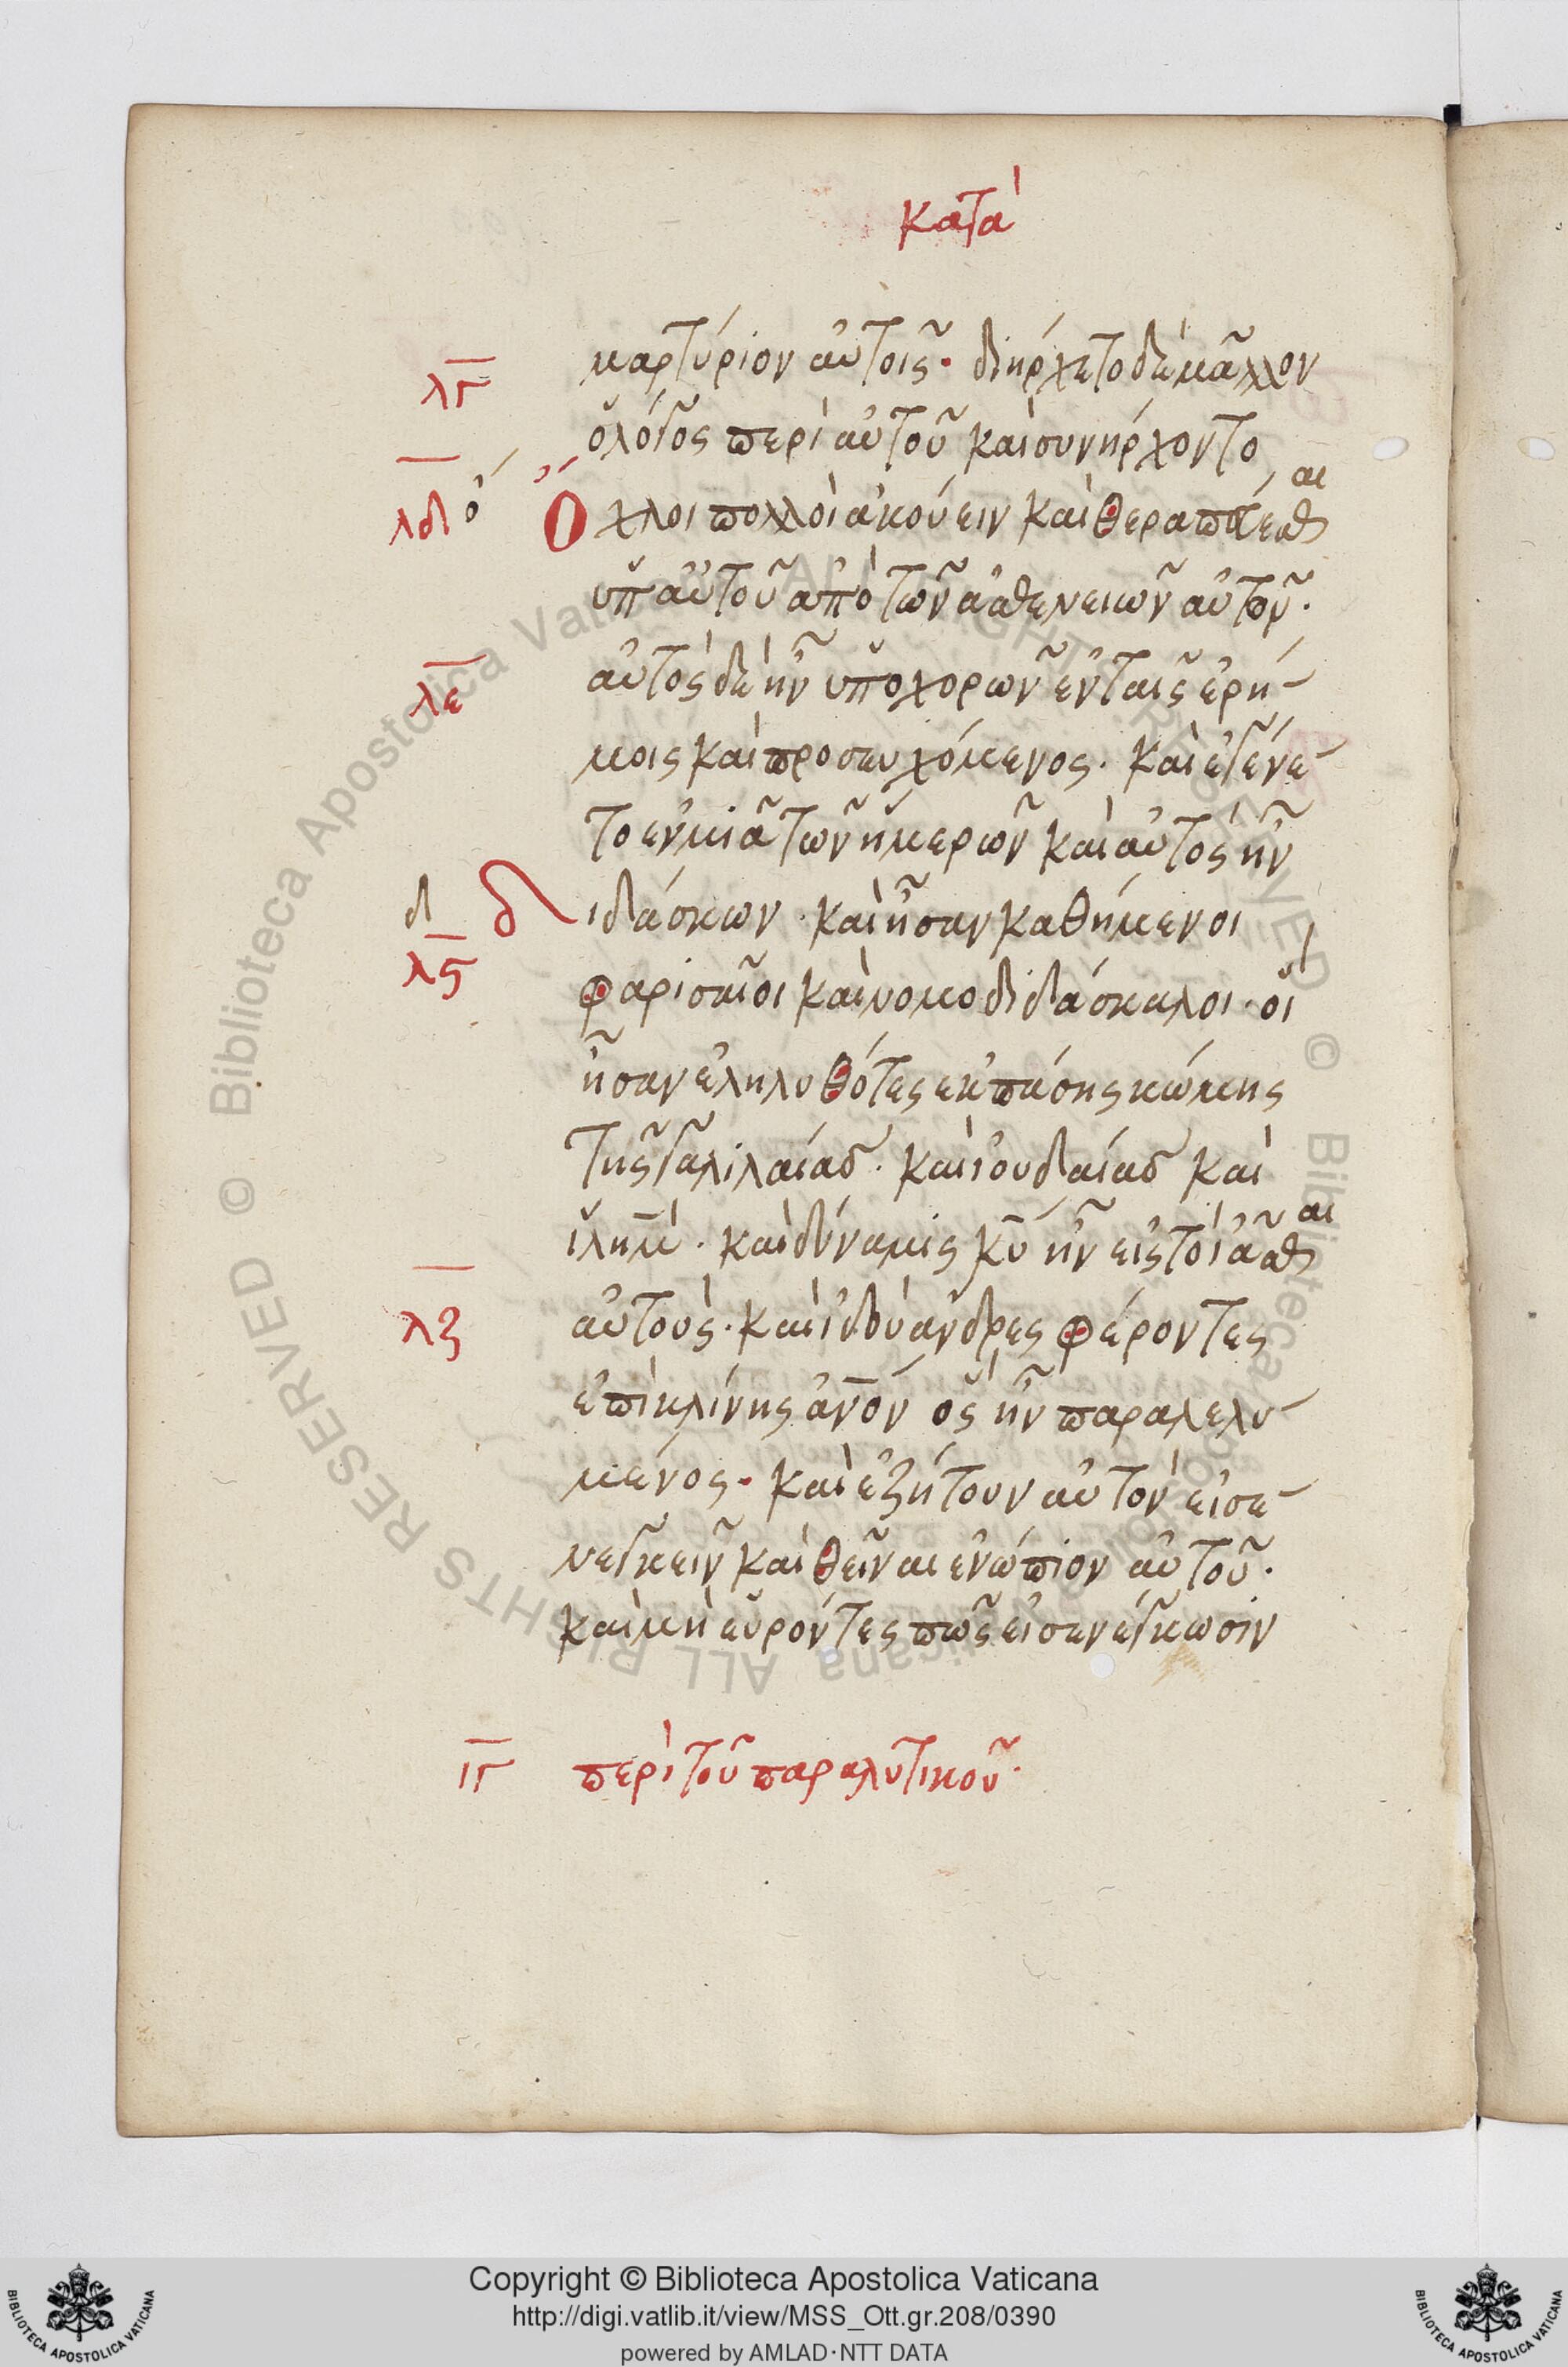 κατὰ
λγ μαρτύριον αὐτοῖς· διήρχετο δὲ μᾶλλον
ὁ λόγος περὶ αὐτοῦ καὶ συνήρχοντο
λδ ὁ Ὄχλοι πολλοὶ ἀκούειν καὶ θεραπεύεσθαι
ὑπ αὐτοῦ ἀπὸ τῶν ἀσθενειῶν αὐτοῦ·
λε αὐτὸς δὲ ἦν ὑποχορῶν ἐν ταῖς ἐρή-
μοις καὶ προσευχόμενος· καὶ ἐγένε-
το ἐν μιᾶ τῶν ἡμερῶν καὶ αὐτὸς ἦν
δ διδάσκων· καὶ ἦσαν καθήμενοι
λς φαρισαῖοι καὶ νομοδιδάσκαλοι· οἳ
ἦσαν ἐληλυθότες ἐκ πάσης κώμης
τῆς γαλιλαίας· καὶ ἰουδαίας καὶ
ἱλημ· καὶ δύναμις κυ ἦν εἰς τὸ ἰᾶσθαι
λζ αὐτούς· καὶ ἰδοὺ ἄνδρες φέροντες
ἐπὶ κλίνης ἀνον ὃς ἦν παραλελυ-
μένος· καὶ ἐζήτουν αὐτὸν εἰσε-
νεγκεῖν καὶ θεῖναι ἐνώπιον αὐτοῦ·
καὶ μὴ εὑρόντες πῶς εἰσενέγκωσιν
ιγ περὶ τοῦ παραλυτικοῦ·
© Biblioteca Apostolica Vaticana ALL RIGHTS RESERVED
Copyright © Biblioteca Apostolica Vaticana
http://digi.vatlib.it/view/MSS_Ott.gr.208/0390
powered by AMLAD·NTT DATA
BIBLIOTECA APOSTOLICA VATICANA
BIBLIOTECA APOSTOLICA VATICANA